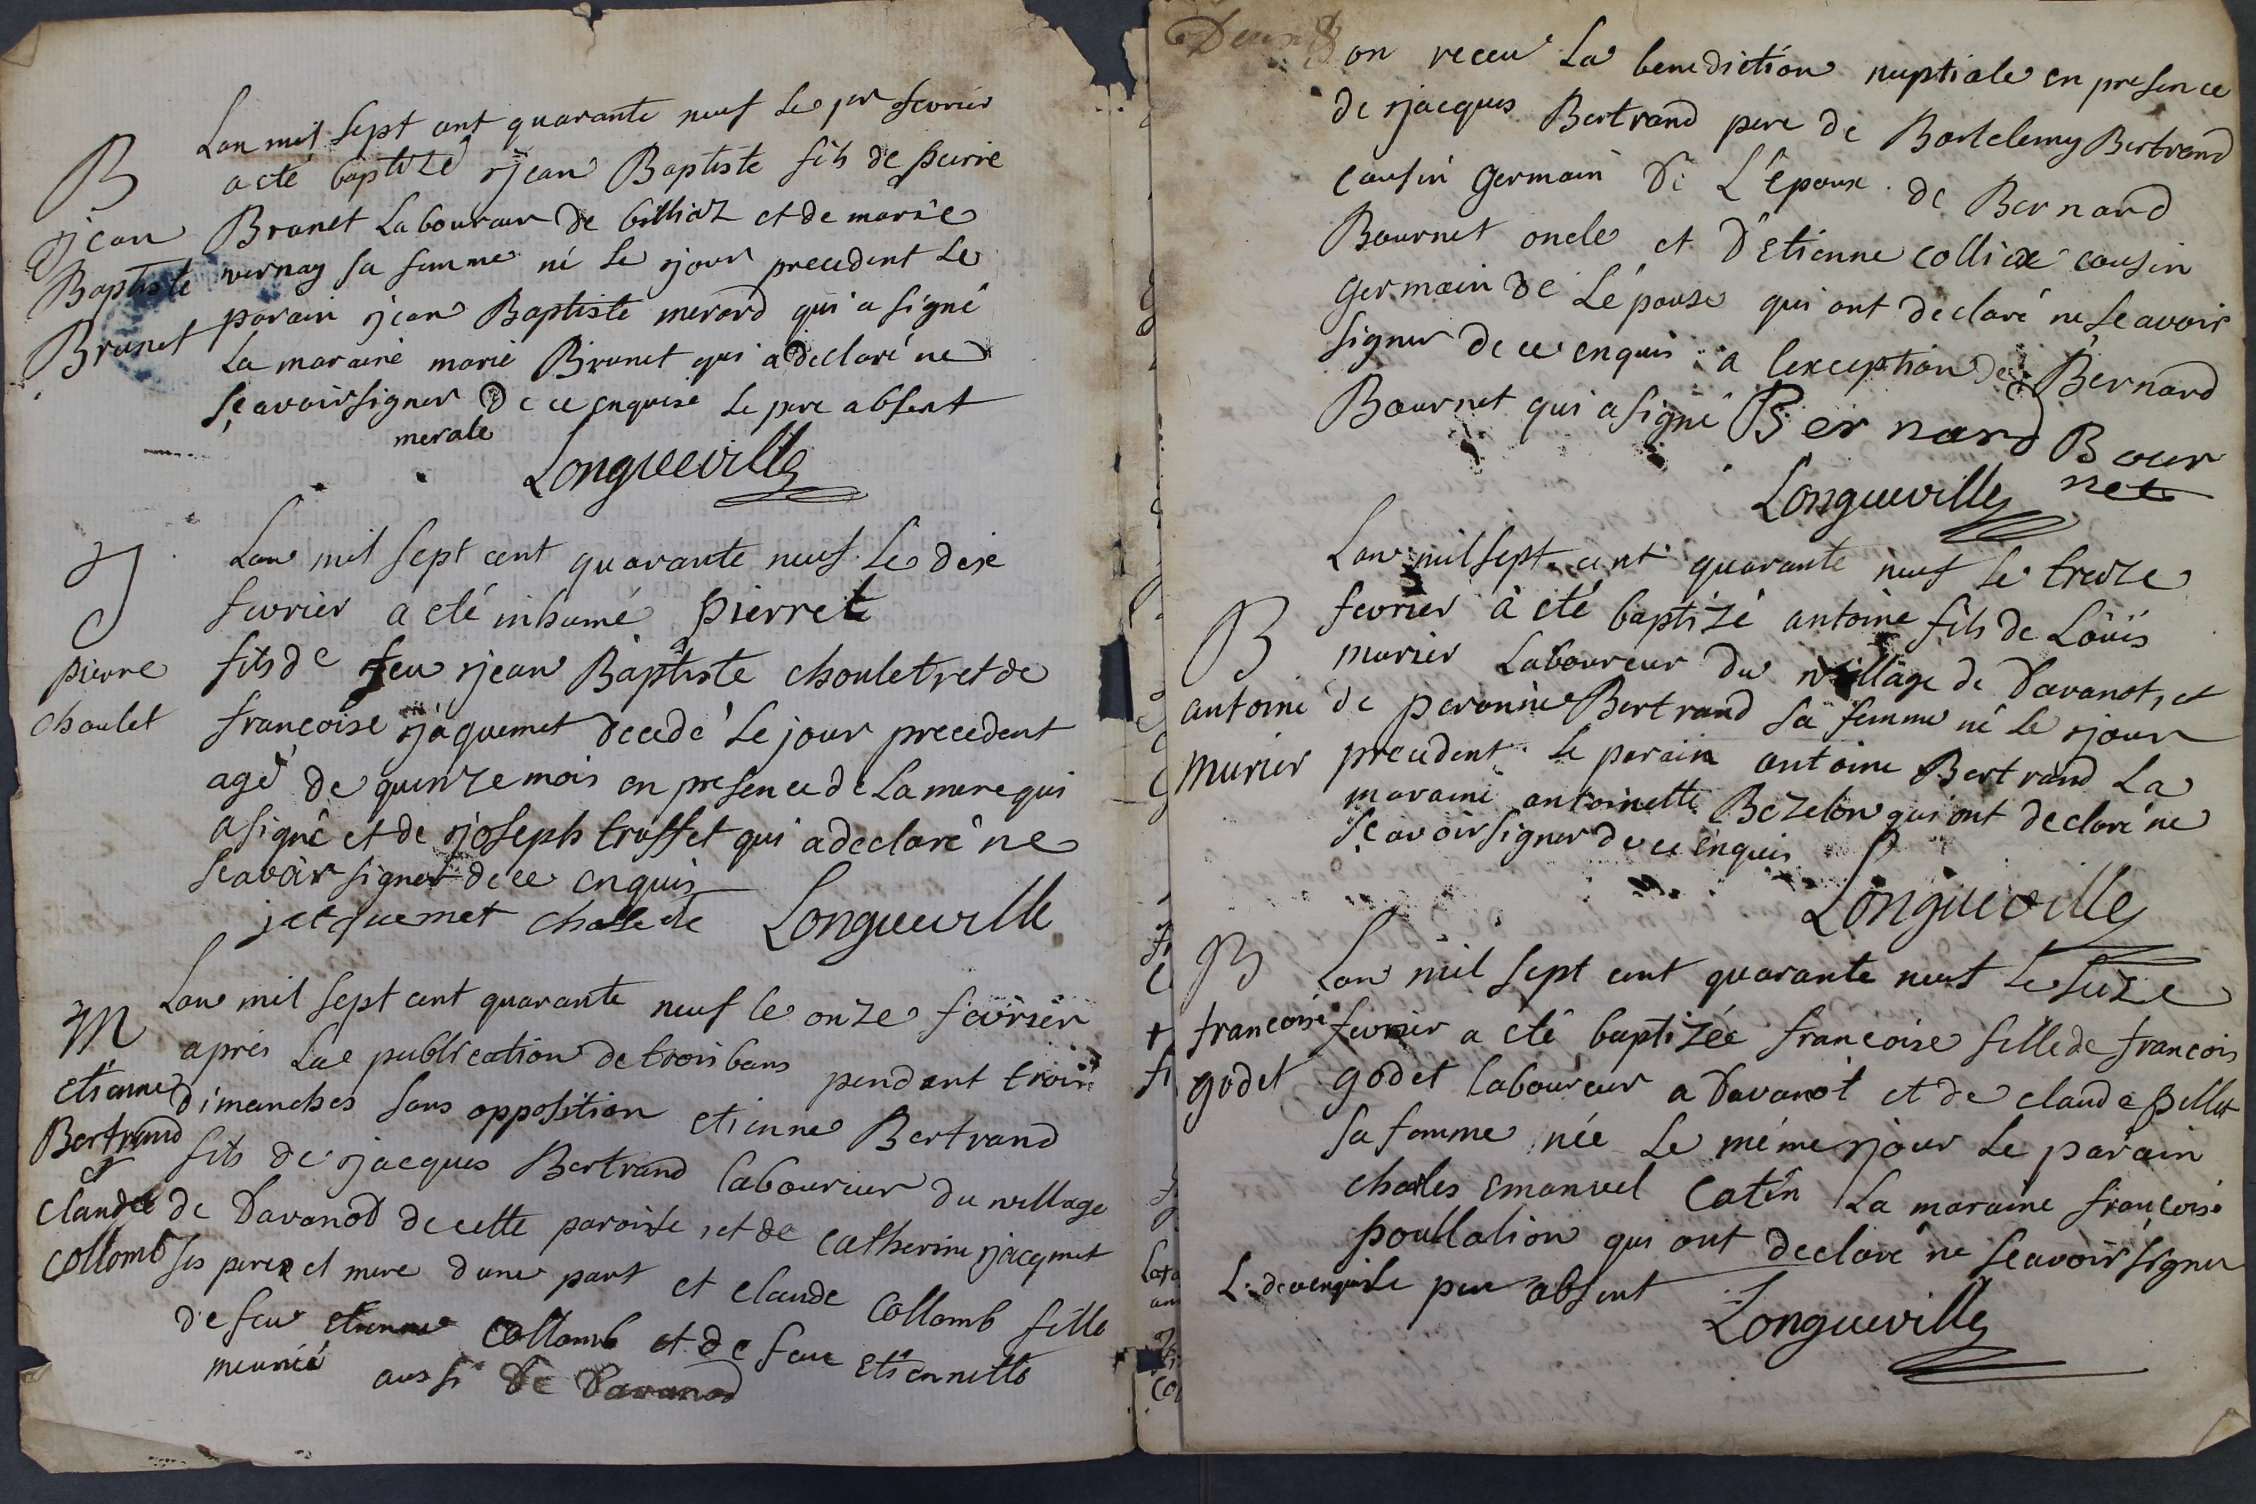 B
jean
Baptiste
Brunet
Lan mil sept cent quarante neuf le per fevrier
a eté baptizé jean Baptiste fils de pierre
Brunet Laboureur de billiaz et de marie
vernay sa femme né le jour precedent le
parain jean Baptiste merard qui a signé
La maraine marie Brunet qui a declaré ne
sçavoir signer de ce enquise le pere absent
merale
Longueville
J
pierre
choulet
Lan mil sept cent quarante neuf le dixe
fevrier a eté inhumé pierre
fils de feu jean Baptiste choulet et de
francoise jaquemet decedé le jour precedent
agé de quinze mois en presence de La mere qui
a signé et de joseph truffet qui a declaré ne
sçavoir signer de ce enquis
jacquemet Longueville
M
etienne
Bertrand
&
claude
collomb
Lan mil sept cent quarante neuf le onze fevrier
aprés La publication de trois bans pendant trois
dimanches sans opposition etienne Bertrand
fils de jacques Bertrand laboureur du village
de Davanod de cette paroisse, et de catherine jacqmet
ses peres et mere dune part et claude Collomb fille
de feu etienne Collomb et de feue etiennette
meunié aussi de Davanod
on receu La benediction nuptiale en presence
de jacques Bertrand pere de Bartelemy Bertrand
cousin germain de L'epoux. de Bernard
Bournet oncle et d'etienne colliex cousin
germain de L'épouse qui ont declaré ne sçavoir
signer de ce enquis a lexception de Bernard
Bournet qui a signé Bernard Bour
net
Longueville
B
antoine
murier
Lan mil sept cent quarante neuf le treize
fevrier à eté baptizé antoine fils de Loüis
murier Laboureur du village de Davanot, et
de peronne Bertrand sa femme né le jour
precedent le parain antoine Bertrand La
maraine antoinette Bezelon qui ont declaré ne
sçavoir signer de ce enquis
Longueville
B
francoise
godet
Lan mil sept cent quarante neuf le seize
fevrier a eté baptizée francoise fille de francois
godet laboureur a Davanot et de claude pillet
sa femme née le méme jour le parain
charles emanuel Catin La maraine françoise
poullalion qui ont declaré ne sçavoir signer
de ce enquis le pere absent
Longueville